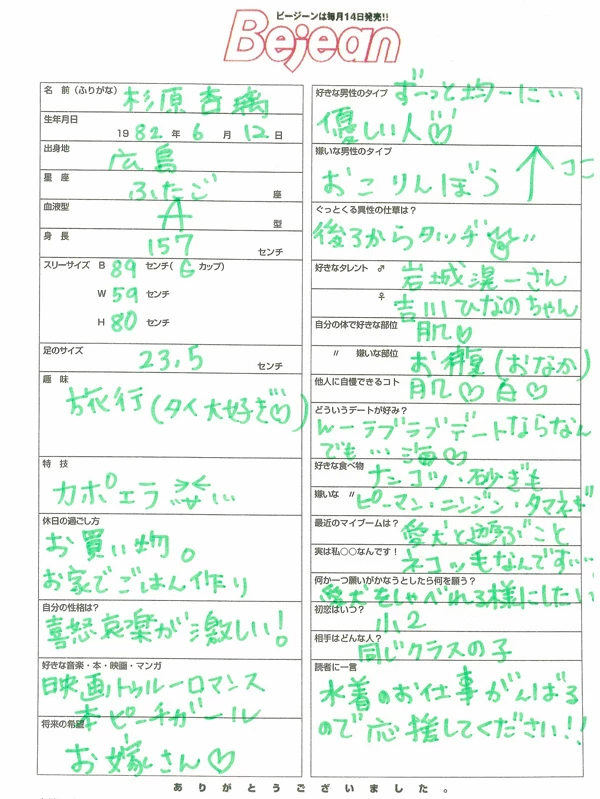 ビージーンは毎月14日発売!!
Bejean
名 前(ふりがな) 杉原杏璃
生年月日
1982年6月12日
出身地 広島
星 座 ふたご座
血液型 A型
身 長 157センチ
スリーサイズ B 89センチ(Gカップ)
W 59センチ
H 80センチ
足のサイズ 23.5センチ
趣 味
旅行(タイ大好き♡)
特 技
カポエラ
休日の過ごし方
お買い物。
お家でごはん作り
自分の性格は?
喜怒哀楽が激しい!
好きな音楽・本・映画・マンガ
映画トゥルーロマンス
本ピーチガール
将来の希望
お嫁さん♡
好きな男性のタイプ ずーっと均一に…
優しい人♡
嫌いな男性のタイプ
おこりんぼう ↑ココ
ぐっとくる異性の仕草は?
後ろからタッチ
好きなタレント ♂ 岩城滉一さん
♀ 吉川ひなのちゃん
自分の体で好きな部位 肌♡
〃 嫌いな部位 お腹(おなか)
他人に自慢できるコト 肌♡白♡
どういうデートが好み?
んーラブラブデートならなん
でも…海♡
好きな食べ物 ナンコツ・砂ぎも
嫌いな 〃 ピーマン・ニンジン・タマネギ
最近のマイブームは? 愛犬と遊ぶこと
実は私○○なんです! ネコッ毛なんです…
何か一つ願いがかなうとしたら何を願う?
愛犬をしゃべれる様にしたい
初恋はいつ? 小2
相手はどんな人? 同じクラスの子
読者に一言
水着のお仕事がんばる
ので応援してください!!
ありがとうございました。